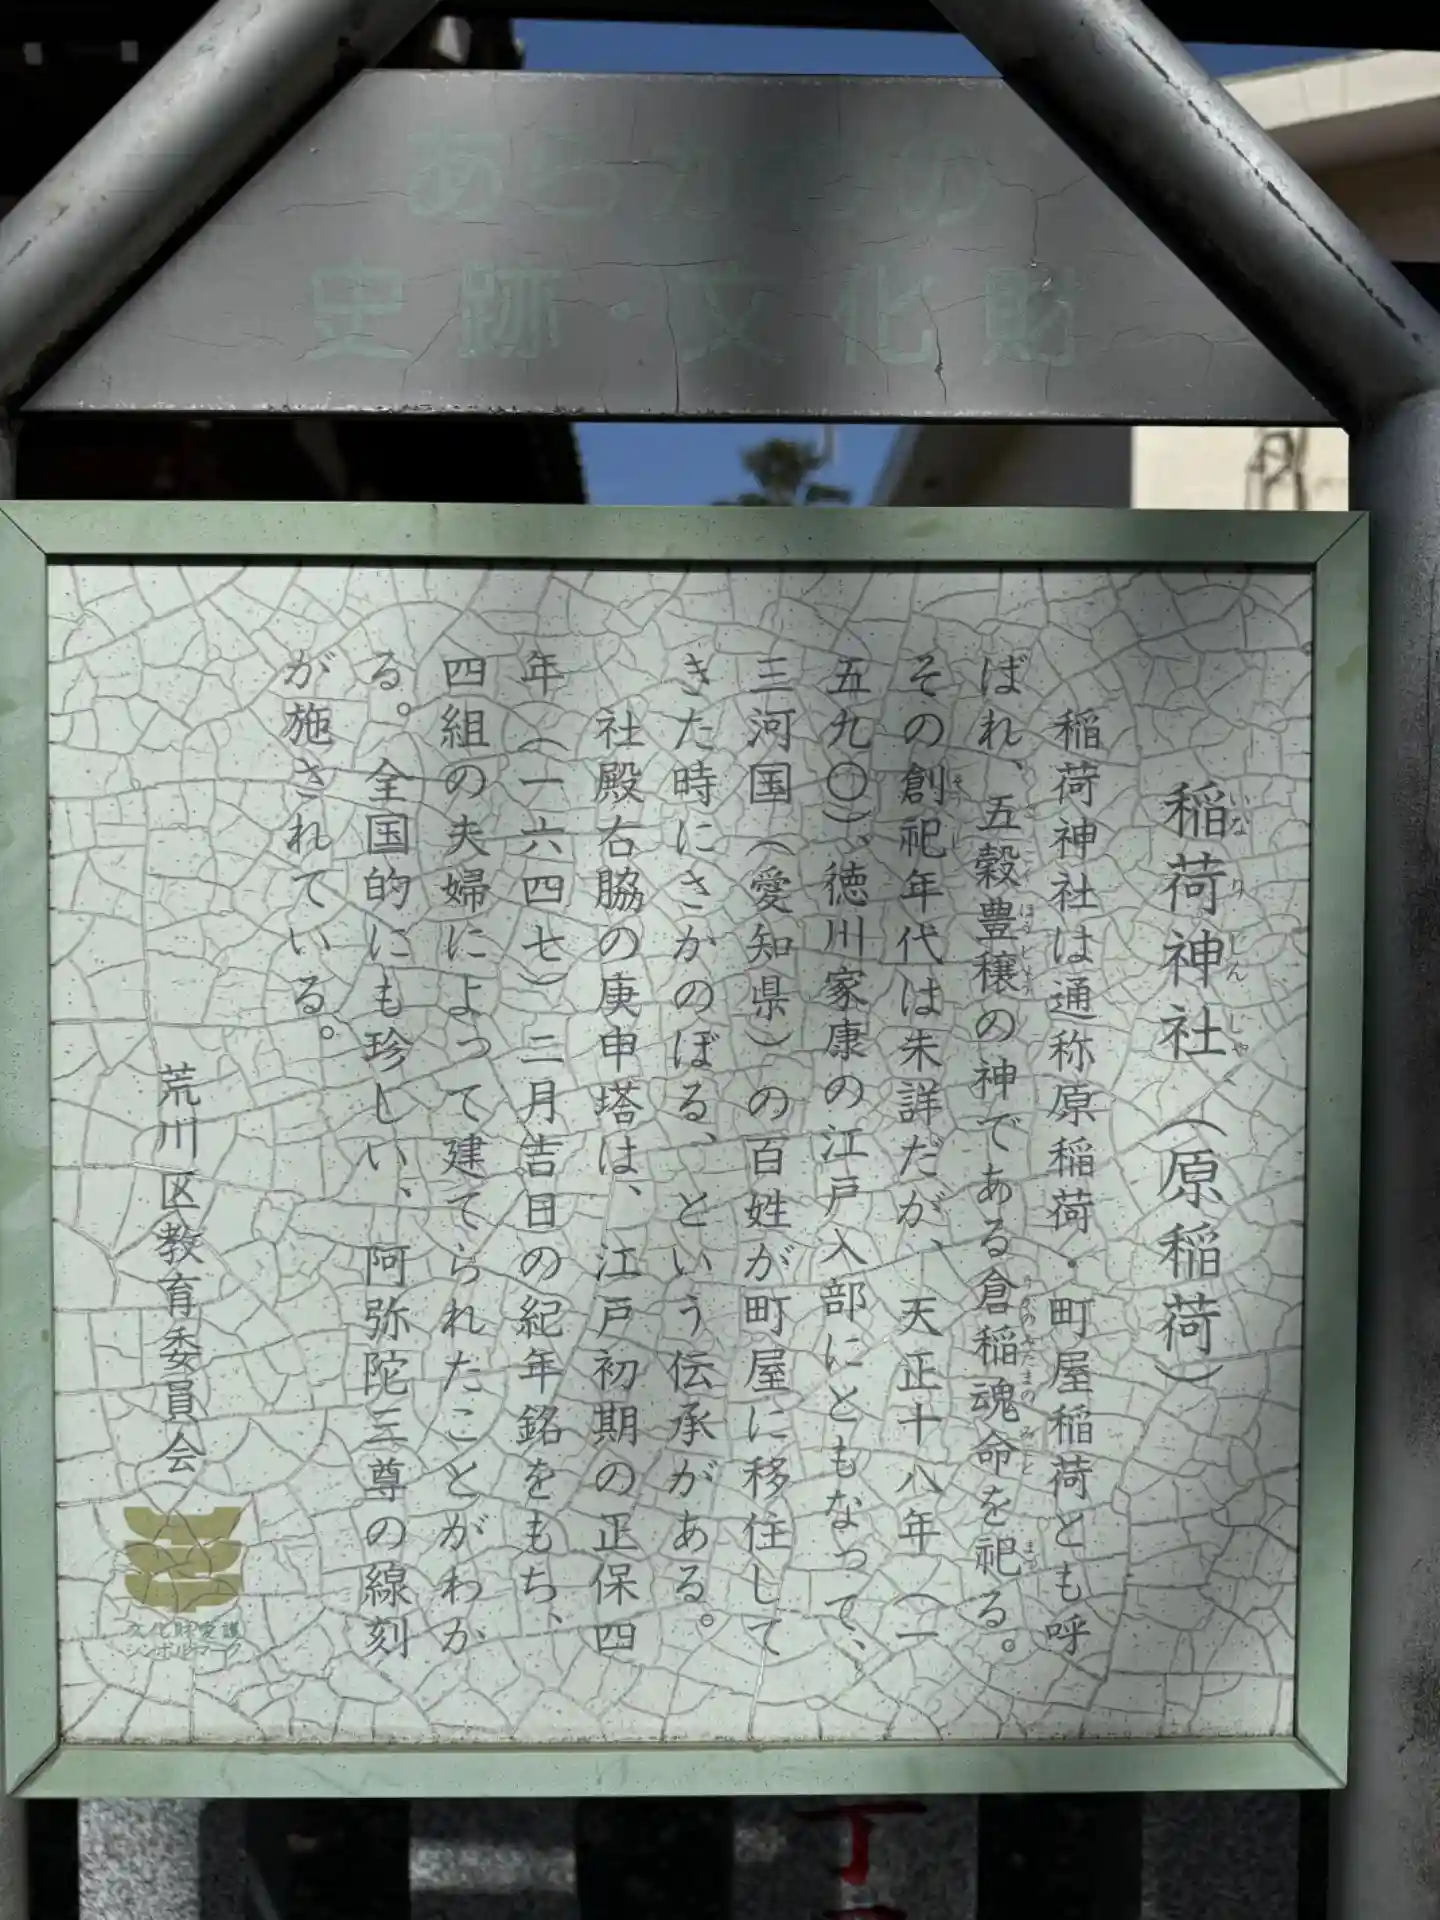 あらかわの
史跡・文化財
稲荷神社（原稲荷）
稲荷神社は通称原稲荷・町屋稲荷とも呼
ばれ、五穀豊穣の神である倉稲魂命を祀る。
その創祀年代は未詳だが、天正十八年（一
五九〇）、徳川家康の江戸入部にともなって、
三河国（愛知県）の百姓が町屋に移住して
きた時にさかのぼる、という伝承がある。
社殿右脇の庚申塔は、江戸初期の正保四
年（一六四七）二月吉日の紀年銘をもち、
四組の夫婦によって建てられたことがわか
る。全国的にも珍しい、阿弥陀三尊の線刻
が施されている。
荒川区教育委員会
文化財愛護
シンボルマーク